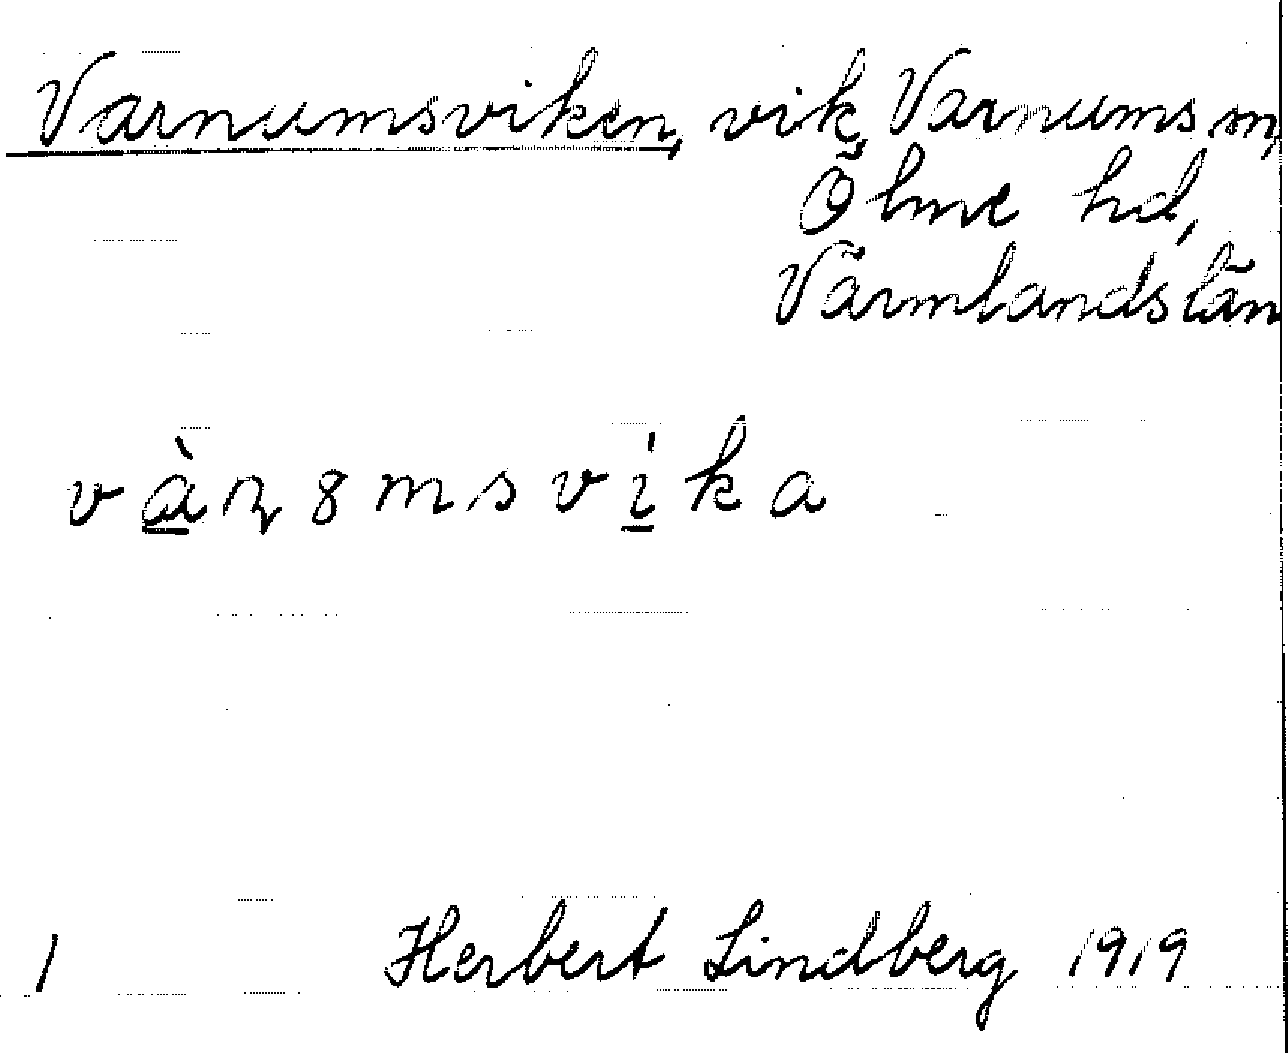 Varnumsviken, vik, Varnums sn,
Ölme hd,
Värmlands län
và̱ɳ8msvi̱̍ka
1 Herbert Lindberg 1919